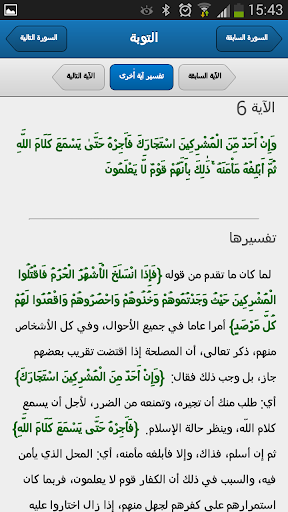 15:43
السورة السابقة
التوبة
السورة التالية
الآية السابقة
تفسير آية أخرى
الآية التالية
الآية 6
وَإِنْ أَحَدٌ مِّنَ الْمُشْرِكِينَ اسْتَجَارَكَ فَأَجِرْهُ حَتَّىٰ يَسْمَعَ كَلَامَ اللَّهِ
ثُمَّ أَبْلِغْهُ مَأْمَنَهُ ۚ ذَٰلِكَ بِأَنَّهُمْ قَوْمٌ لَّا يَعْلَمُونَ
تفسيرها
لما كان ما تقدم من قوله {فَإِذَا انْسَلَخَ الْأَشْهُرُ الْحُرُمُ فَاقْتُلُوا
الْمُشْرِكِينَ حَيْثُ وَجَدْتُمُوهُمْ وَخُذُوهُمْ وَاحْصُرُوهُمْ وَاقْعُدُوا لَهُمْ
كُلَّ مَرْصَدٍ} أمرا عاما في جميع الأحوال، وفي كل الأشخاص
منهم، ذكر تعالى، أن المصلحة إذا اقتضت تقريب بعضهم
جاز، بل وجب ذلك فقال: {وَإِنْ أَحَدٌ مِنَ الْمُشْرِكِينَ اسْتَجَارَكَ}
أي: طلب منك أن تجيره، وتمنعه من الضرر، لأجل أن يسمع
كلام الله، وينظر حالة الإسلام. {فَأَجِرْهُ حَتَّى يَسْمَعَ كَلَامَ اللَّهِ}
ثم إن أسلم، فذاك، وإلا فأبلغه مأمنه، أي: المحل الذي يأمن
فيه، والسبب في ذلك أن الكفار قوم لا يعلمون، فربما كان
استمرارهم على كفرهم لجهل منهم، إذا زال اختاروا عليه